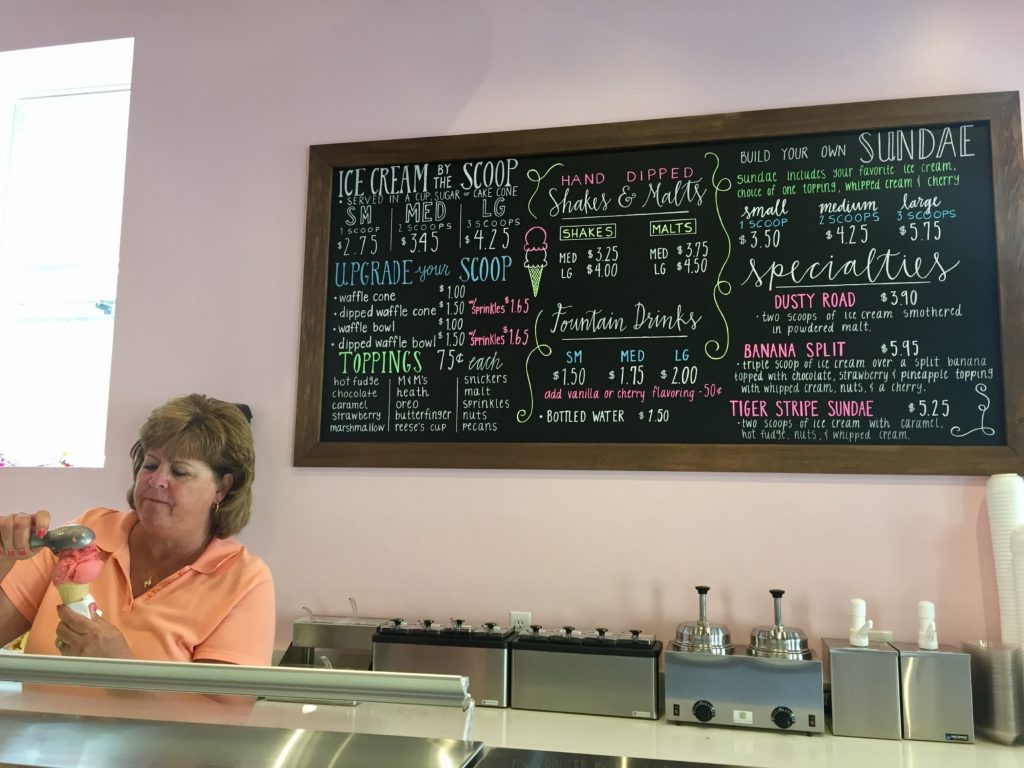 ICE CREAM BY THE SCOOP
• SERVED IN A CUP, SUGAR OR CAKE CONE
SM | MED | LG
1 SCOOP | 2 SCOOPS | 3 SCOOPS
$2.75 | $345 | $4.25
UPGRADE your SCOOP
• waffle cone $1.00
• dipped waffle cone $1.50 w/ Sprinkles $1.65
• waffle bowl $1.00
• dipped waffle bowl $1.50 w/ Sprinkles $1.65
TOPPINGS 75¢ each
hot fudge | M&M's | snickers
chocolate | heath | malt
caramel | oreo | sprinkles
strawberry | butterfinger | nuts
marshmallow | reese's cup | pecans
HAND DIPPED
Shakes & Malts
SHAKES MALTS
MED $3.25 MED $3.75
LG $4.00 LG $4.50
Fountain Drinks
SM MED LG
$1.50 $1.75 $2.00
add vanilla or cherry flavoring • 50¢
• BOTTLED WATER $1.50
BUILD YOUR OWN SUNDAE
Sundae includes your favorite ice cream,
choice of one topping, whipped cream & cherry
small medium large
1 SCOOP 2 SCOOPS 3 SCOOPS
$3.50 $4.25 $5.75
specialties
DUSTY ROAD $3.90
• two scoops of ice cream smothered
in powdered malt.
BANANA SPLIT $5.95
• triple scoop of ice cream over a split banana
topped with chocolate, strawberry & pineapple topping
with whipped cream, nuts, & a cherry.
TIGER STRIPE SUNDAE $5.25
• two scoops of ice cream with caramel,
hot fudge, nuts, & whipped cream.